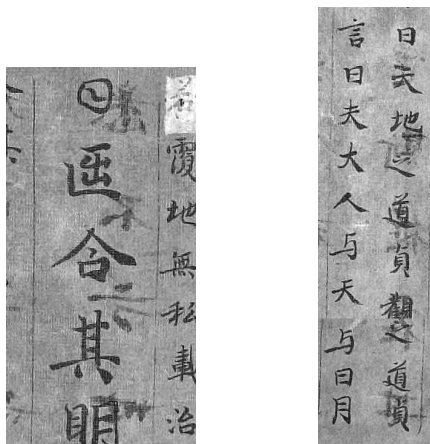 覆地無私載治
𡆠𠥱合其明
曰天地之道貞觀之道貞
言曰夫大人与天与日月